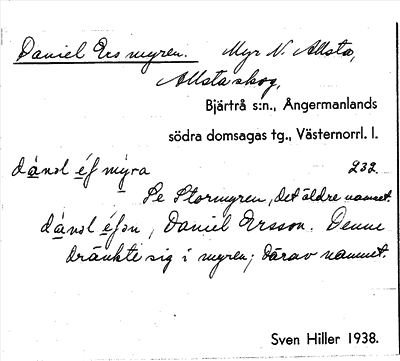 Daniel Ers myren. Myr N. Allsta,
Allsta skog,
Bjärtrå s:n., Ångermanlands
södra domsagas tg., Västernorrl. l.
dánəl éf mýra 232.
Se Stormyren, det äldre namnet.
dánəl éfən, Daniel Ersson. Denne
dränkte sig i myren; därav namnet.
Sven Hiller 1938.